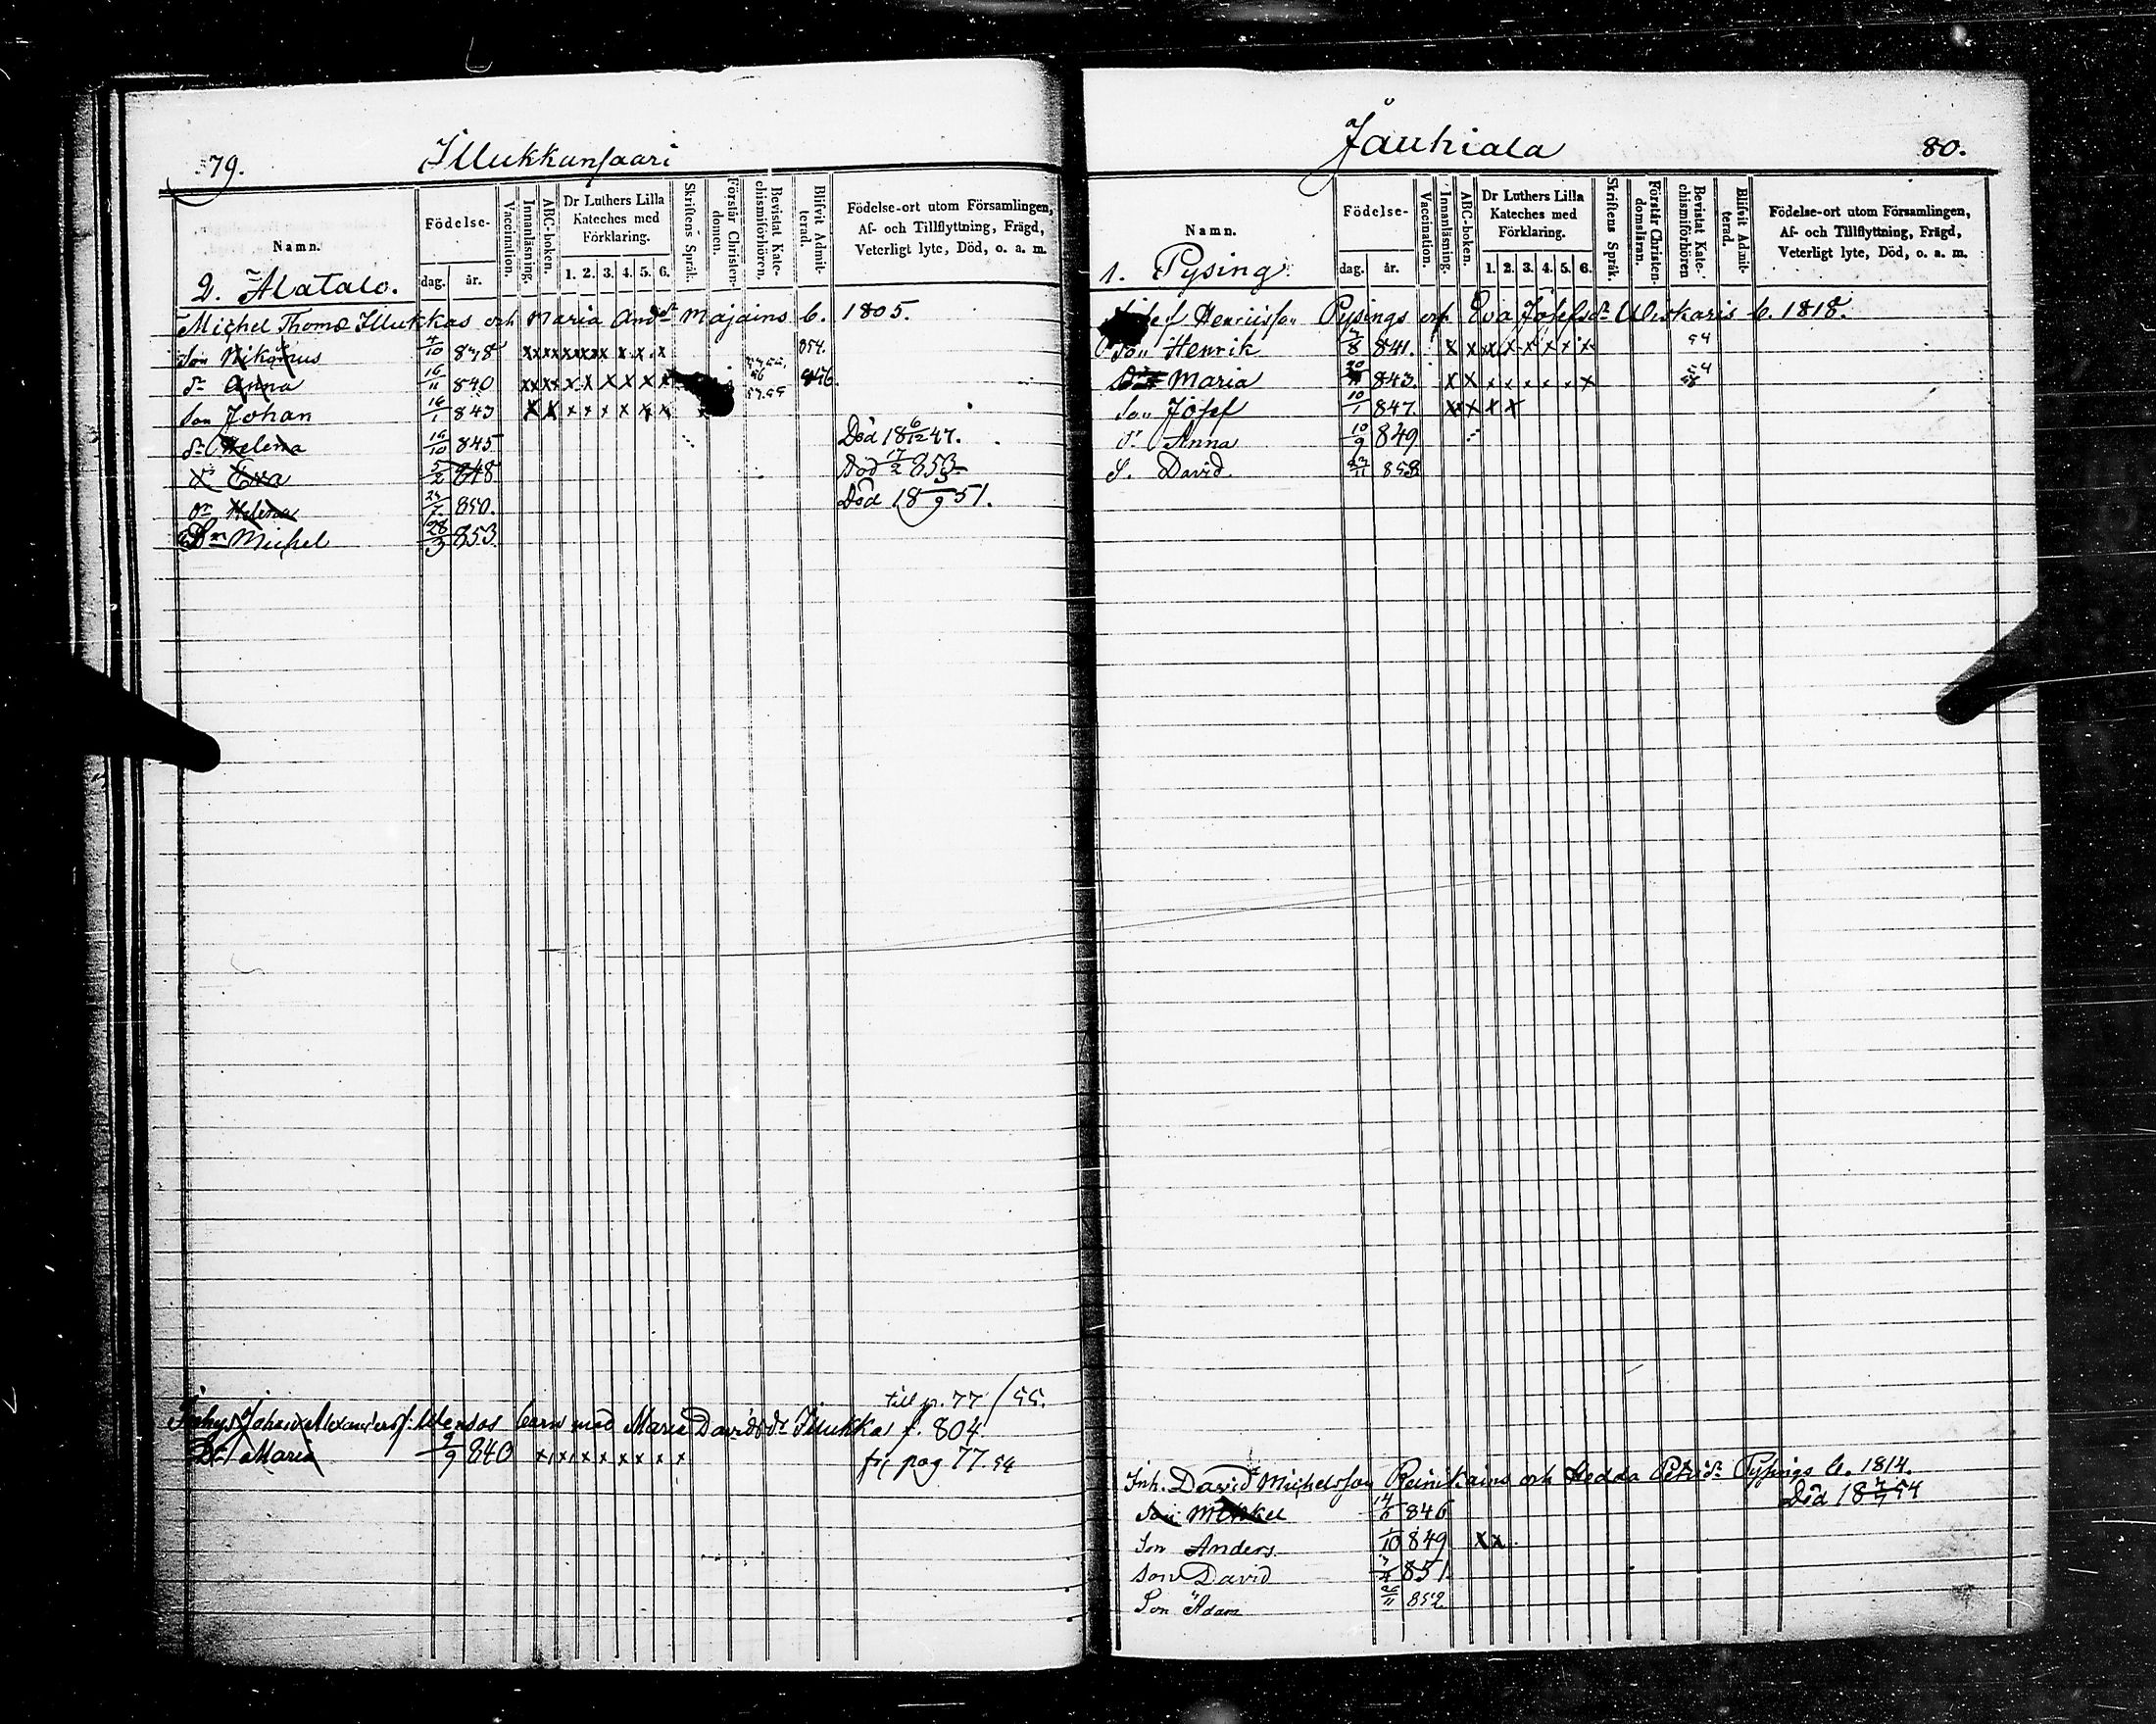 79.
Illukkansaari
Namn.
Födelse-
dag.
år.
Vaccination.
Innanläsning.
ABC-boken.
Dr Luthers Lilla
Kateches med
Förklaring.
1. 2. 3. 4. 5. 6.
Skriftens Språk.
Förstår Christen-
domen.
Bevistat Kate-
chismiförhören.
Blifvit Admit-
terad.
Födelse-ort utom Församlingen,
Af- och Tillflyttning, Frägd,
Veterligt lyte, Död, o. a. m.
2. Alatalo.
Michel Thomæ Illukkas och Maria Andsdr Majains b. 1805.
Son 4/10 838 xxxxxxxxx x.x.x 854.
dr Anna 16/11 840 xxxx x x x x x x 56 846
Son Johan 16/1 843 x x x x x x x x
dr Helena 16/10 845 Död 18 6/12 47.
Eva 5/2 848 Död 17/2 853
dr Helena 850. Död 18 3/9 51.
Son Michel 28/3 853
till p. 77/55.
Johan Alexandersf: barn med Maria Davidsdr Illukka f. 804
Dr Maria 9/9 840 xxxxxxxxx fr. pag 77. 54
Jauhiala
80.
Namn.
Födelse-
dag.
år.
Vaccination.
Innanläsning.
ABC-boken.
Dr Luthers Lilla
Kateches med
Förklaring.
1. 2. 3. 4. 5. 6.
Skriftens Språk.
Förstår Christen-
domsläran.
Bevistat Kate-
chismiförhören
Blifvit Admit-
terad.
Födelse-ort utom Församlingen,
Af- och Tillflyttning, Frägd,
Veterligt lyte, Död, o. a. m.
1. Pysing
Henricsson Pysings och Eva Josefsdr b. 1818.
Son Henrik 7/8 841. x x x x x x x x 54
Maria 843. x x x x x x x x 54
Son Josef 10/1 847 x x x x
dr Anna 10/9 849
S. David 853
Inh. David Michelsson Reinikains och Hedda Petrisdr Pysings b. 1814.
Son Michel 846 Död 18 54
Son Anders /10 849 x x
Son David 851
Son Adam /11 852